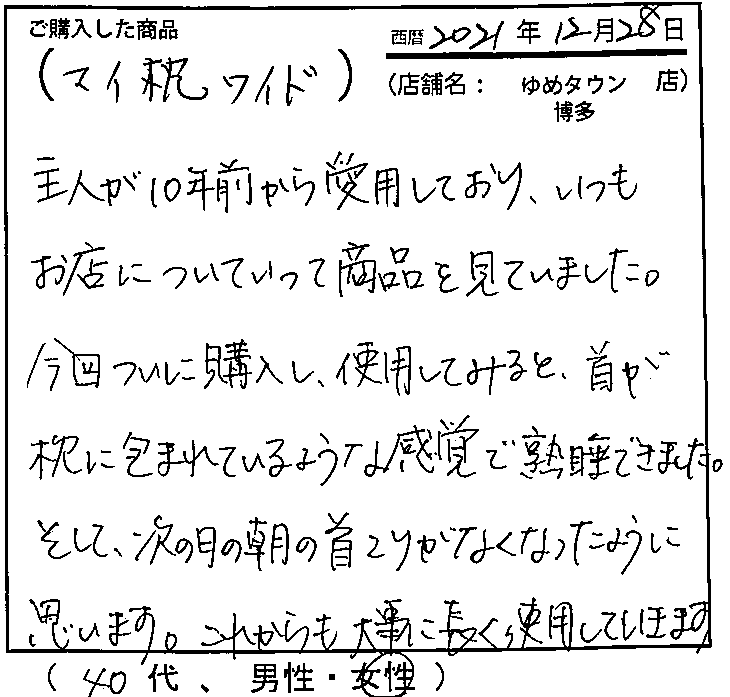 ご購入した商品
西暦 2021 年 12月 28日
(マイ枕 ワイド)
(店舗名: ゆめタウン 店)
博多
主人が10年前から愛用しており、いつも
お店についていって商品を見ていました。
今回ついに購入し、使用してみると、首が
枕に包まれているような感覚で熟睡できました。
そして、次の日の朝の首こりがなくなったように
思います。これからも大事に長く使用していきます
( 40 代 、 男性・女性 )